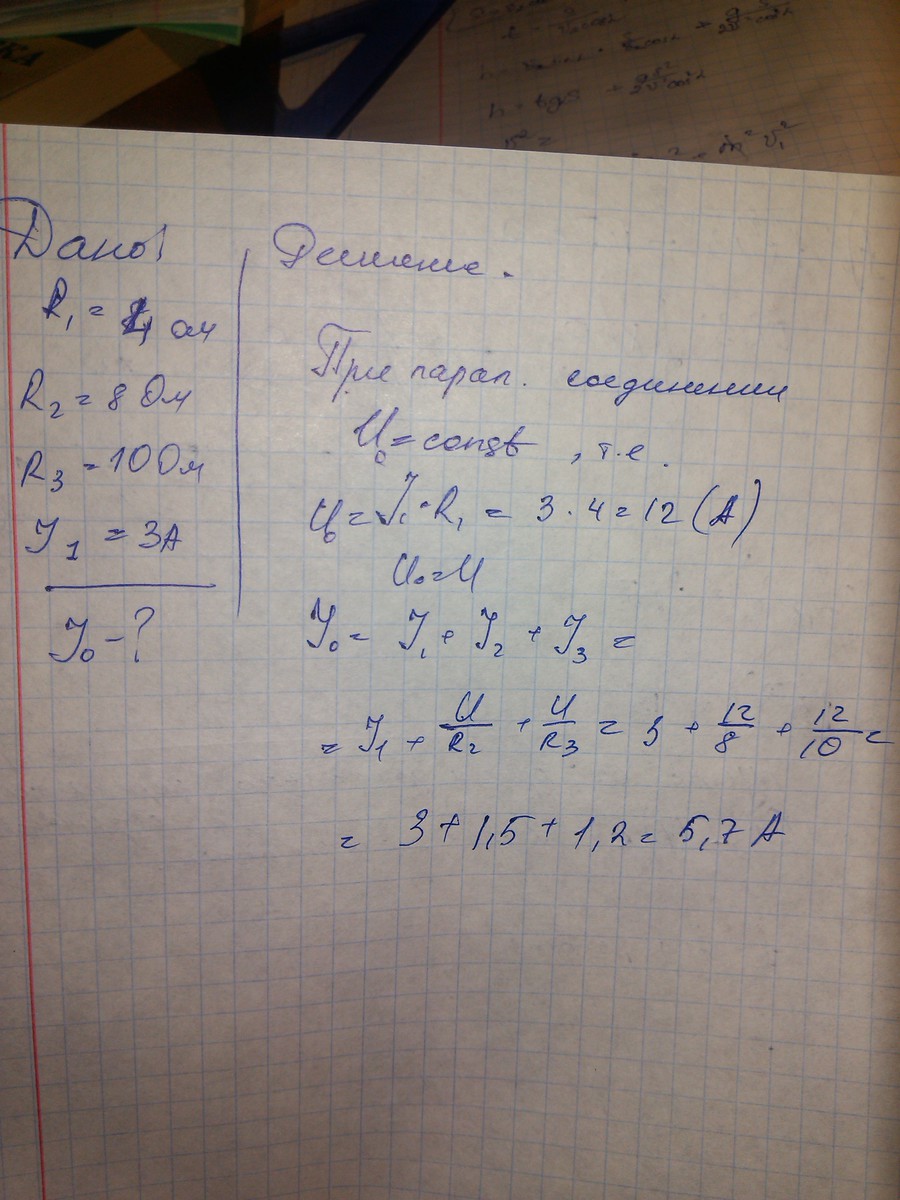 КА
Дано:
R₁ = 4 ом
R₂ = 8 Ом
R₃ = 10 Ом
I₁ = 3А
I₀ - ?
Решение.
При парал. соединении
U₀ = const, т.е.
U₀ = I₁·R₁ = 3·4 = 12 (А)
U₀ = U
I₀ = I₁ + I₂ + I₃ =
= I₁ + U/R₂ + U/R₃ = 3 + 12/8 + 12/10 =
= 3 + 1,5 + 1,2 = 5,7 А